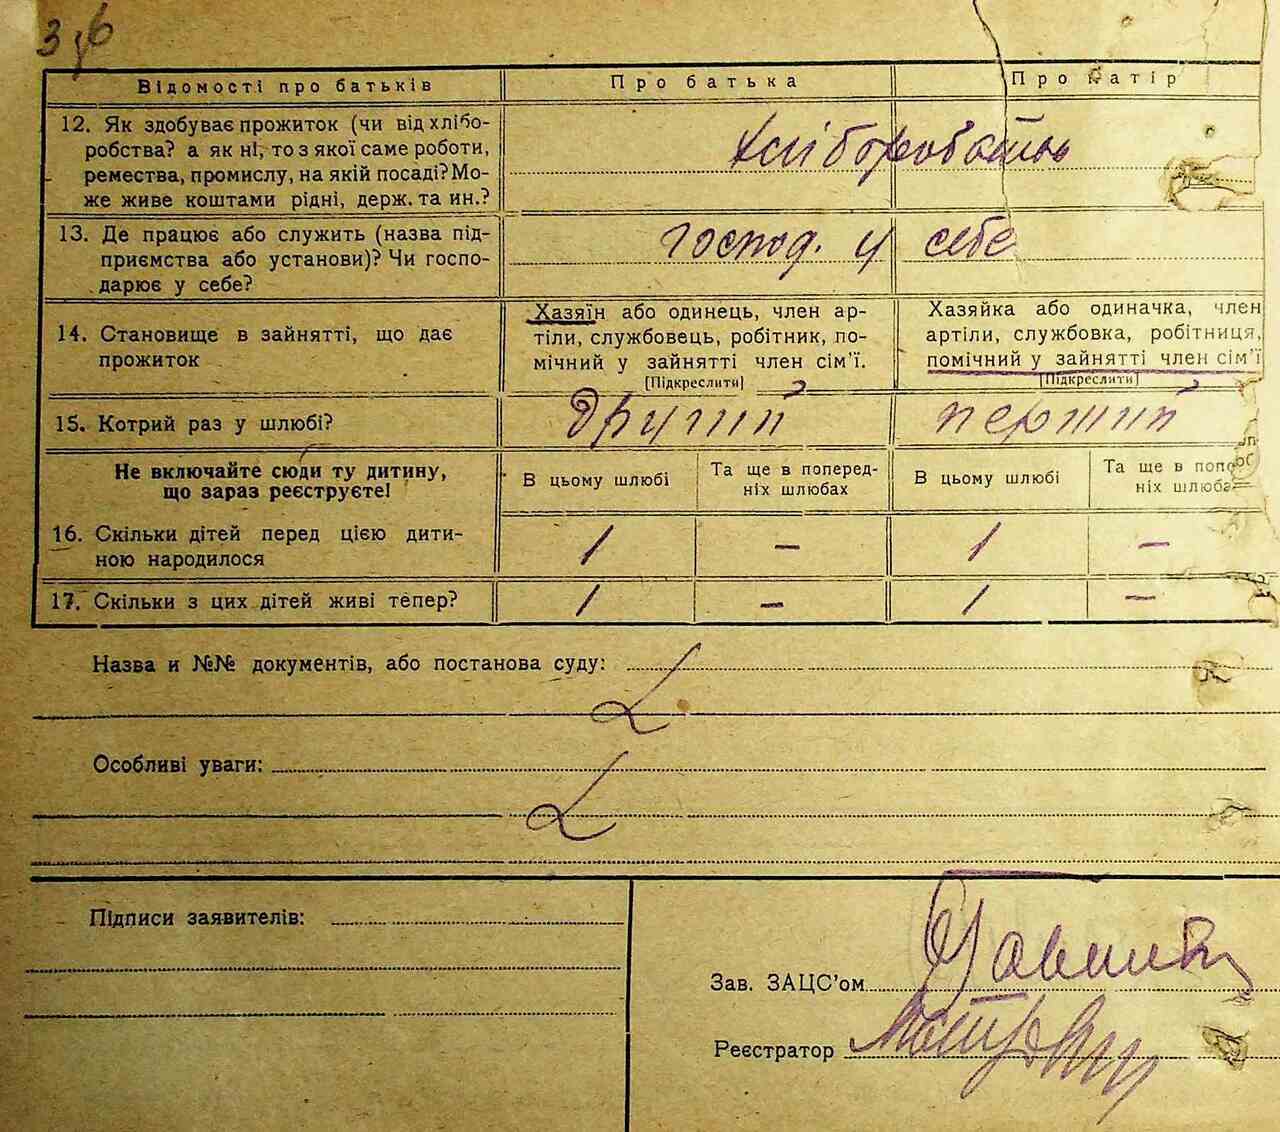 36
Відомості про батьків
Про батька
Про матір
12. Як здобуває прожиток (чи від хлібо-
робства? а як ні, то з якої саме роботи,
ремества, промислу, на якій посаді? Мо-
же живе коштами рідні, держ. та ин.?
13. Де працює або служить (назва під-
приємства або установи)? Чи госпо-
дарює у себе?
господ. у себе
14. Становище в зайнятті, що дає
прожиток
Хазяїн або одинець, член ар-
тіли, службовець, робітник, по-
мічний у зайнятті член сім'ї.
[Підкреслити]
Хазяйка або одиначка, член
артіли, службовка, робітниця,
помічний у зайнятті член сім'ї
[Підкреслити]
15. Котрий раз у шлюбі?
другий
перший
Не включайте сюди ту дитину,
що зараз реєструєте!
В цьому шлюбі
Та ще в поперед-
ніх шлюбах
В цьому шлюбі
Та ще в попе
ніх шлюба
16. Скільки дітей перед цією дити-
ною народилося
1 – 1 –
17. Скільки з цих дітей живі тепер?
1 – 1 –
Назва и №№ документів, або постанова суду:
Особливі уваги:
Підписи заявителів:
Зав. ЗАЦС'ом
Реєстратор